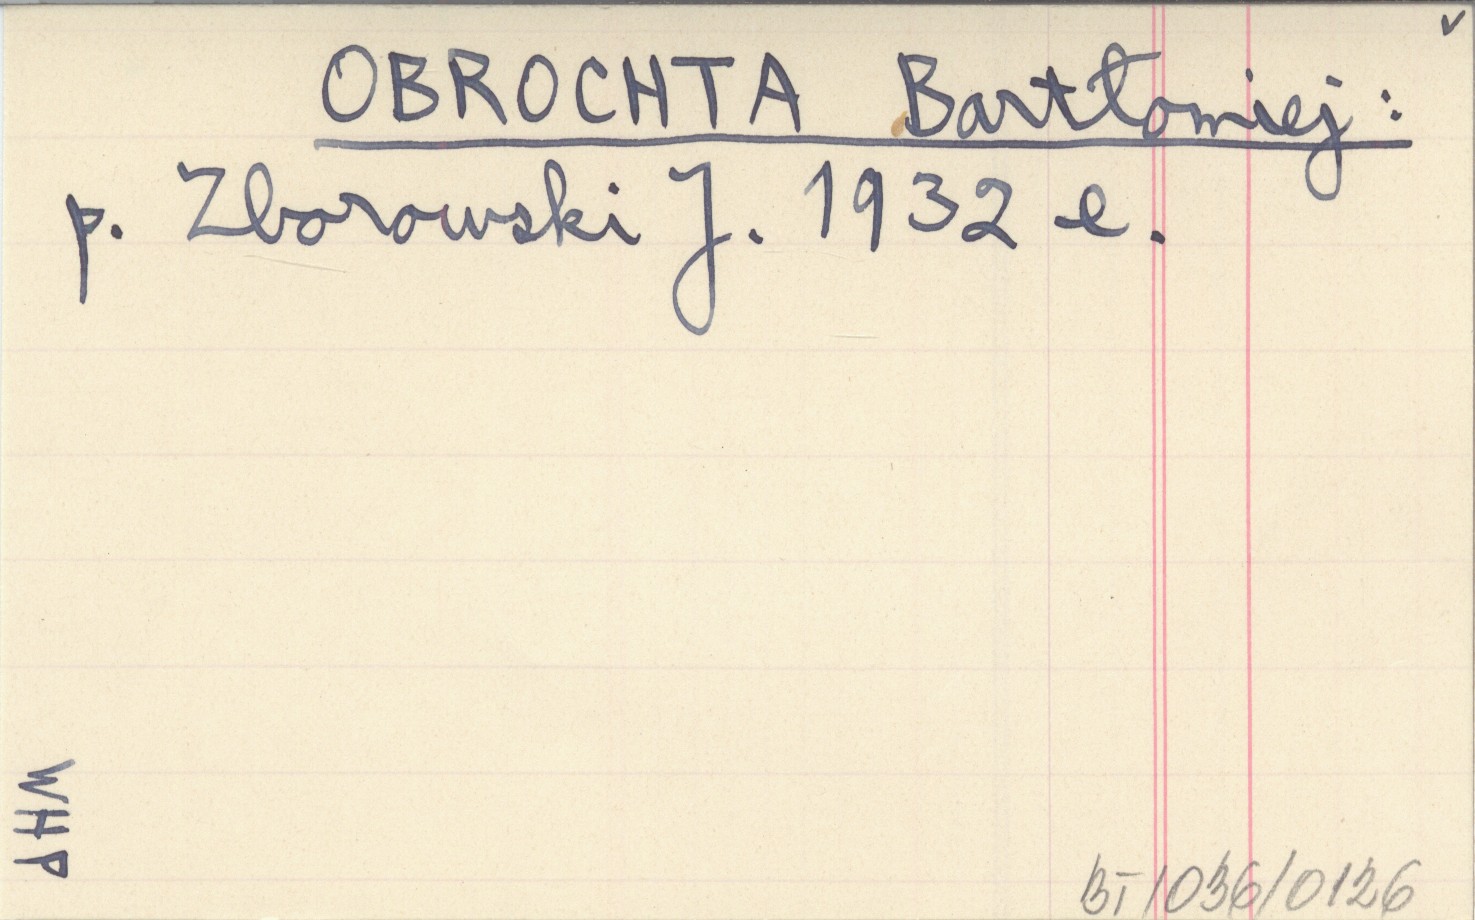 ✓
OBROCHTA Bartłomiej:
p. Zborowski J. 1932 e.
WHP
BT/036/0126